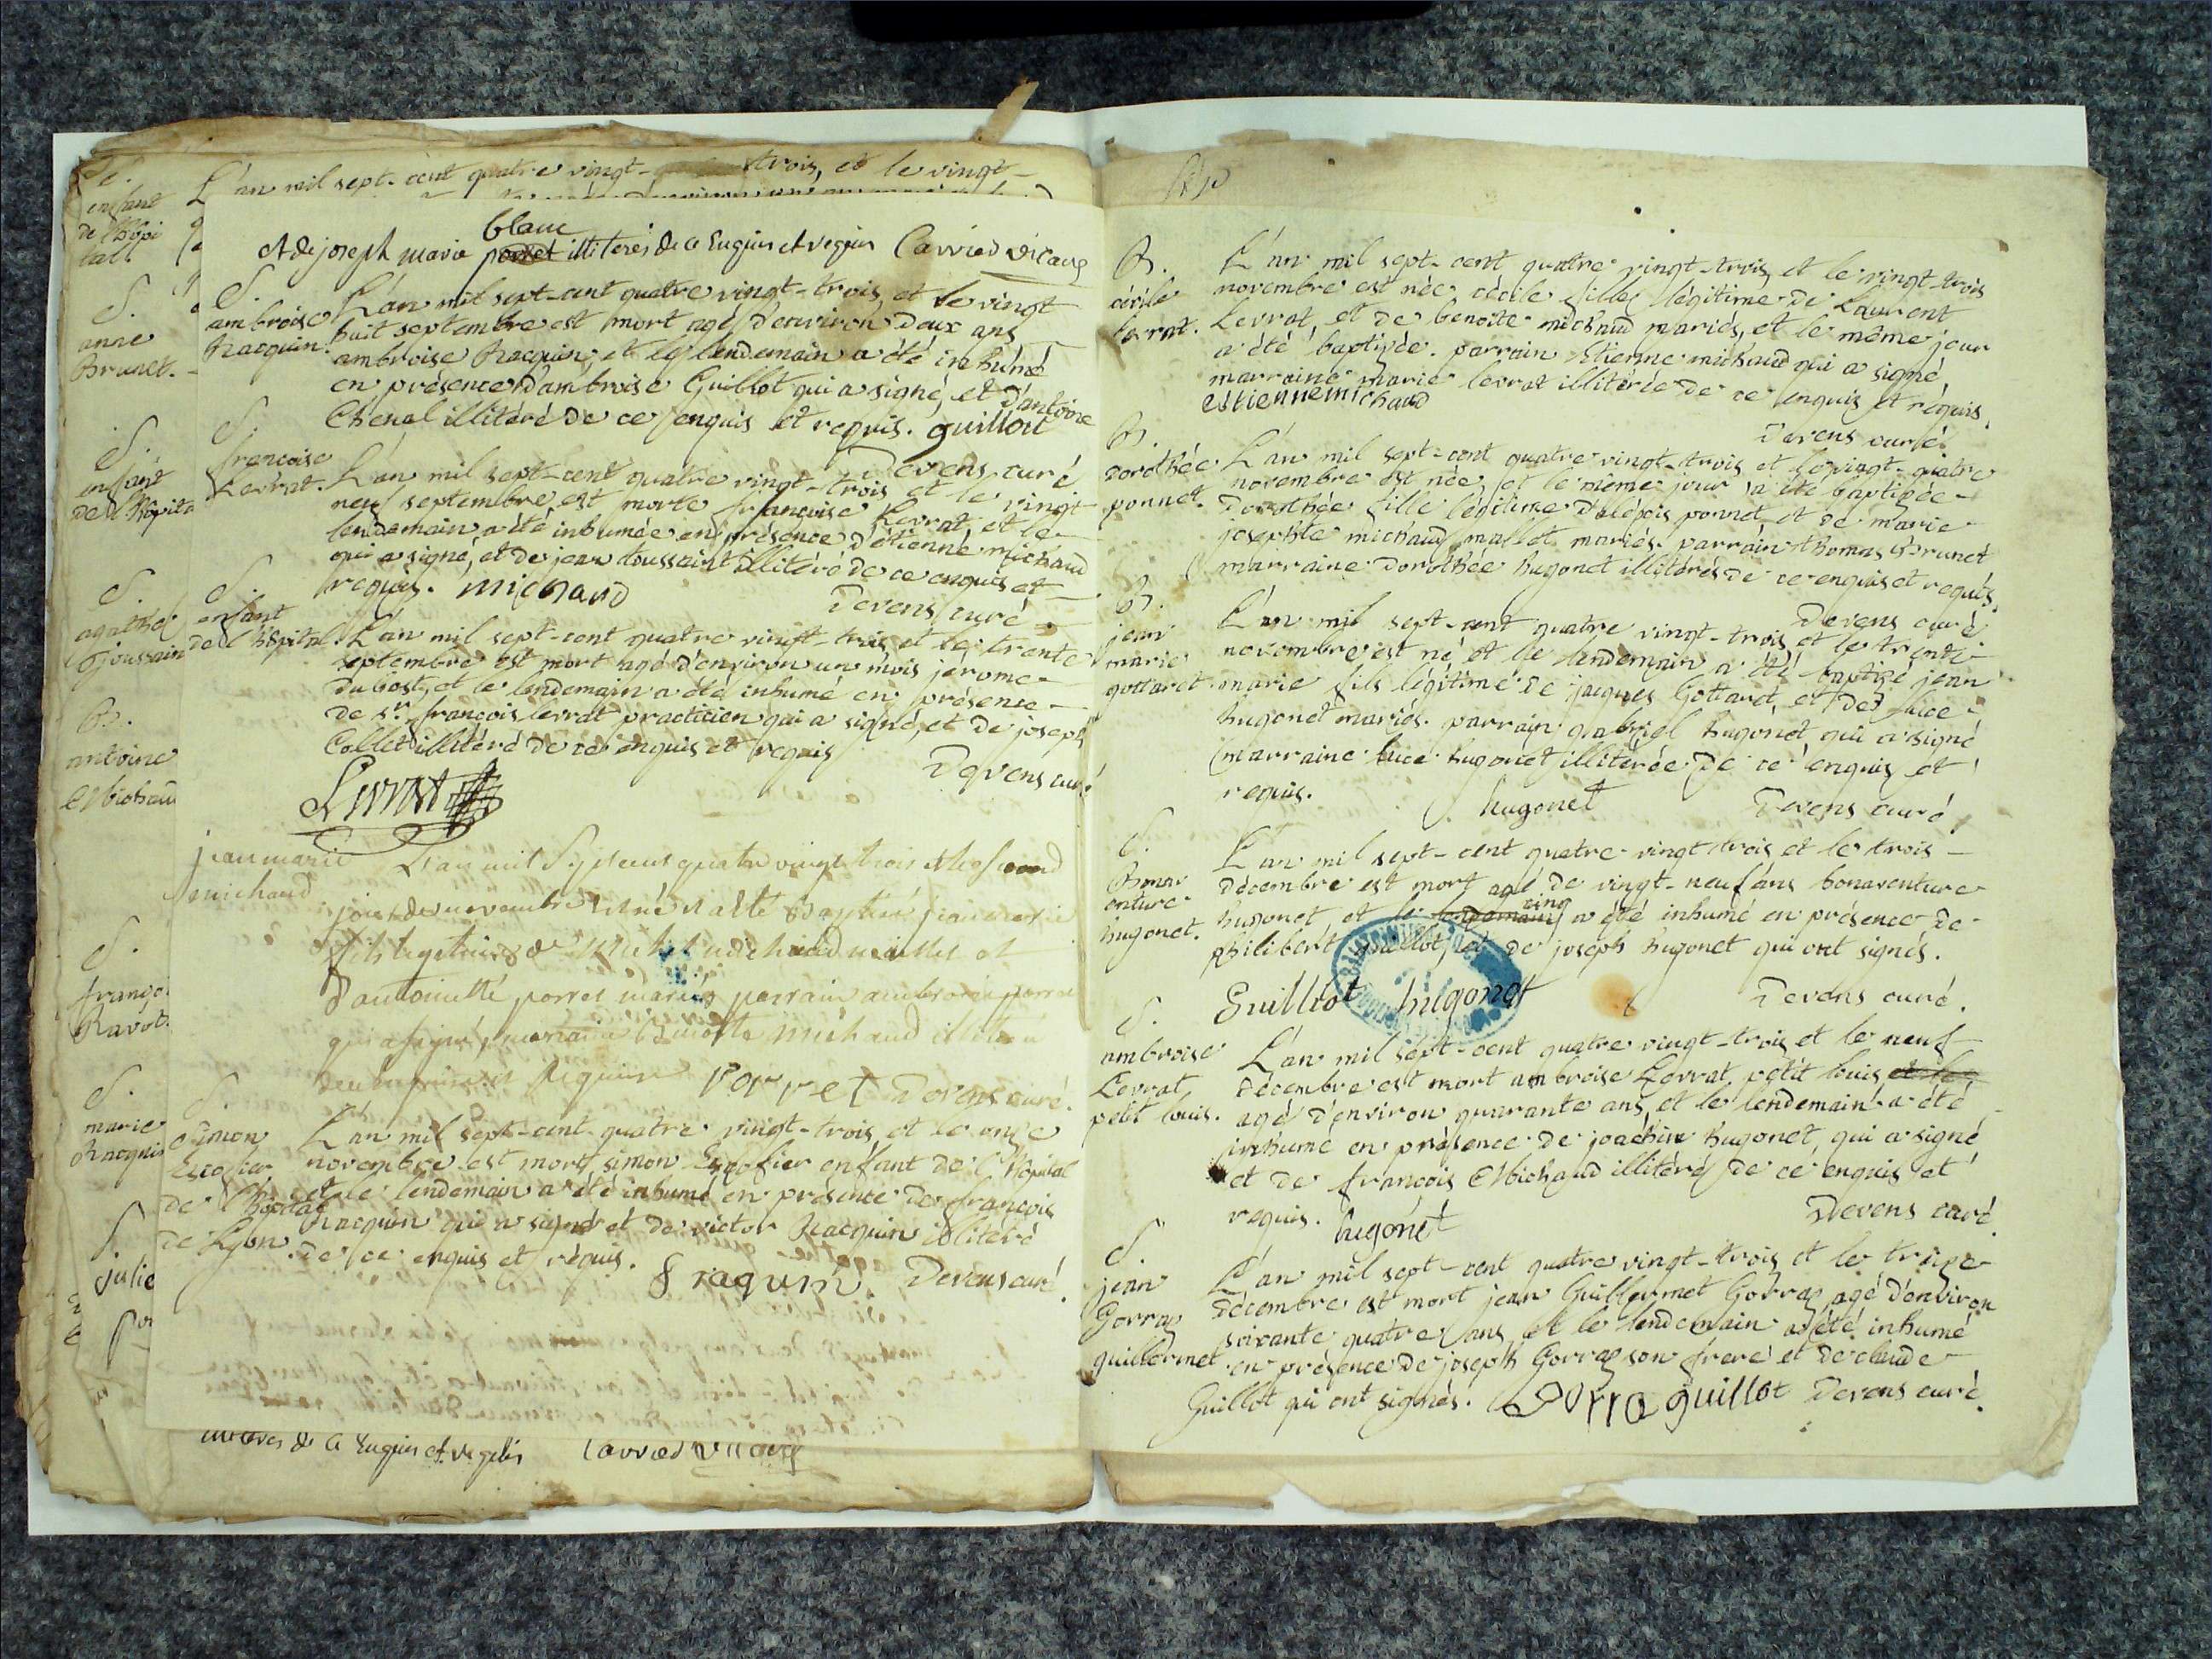 L'an mil sept-cent quatre vingt- trois, et le vingt-
enfant
de l'hôpi
tal
S.
anne
Brunet.
S.
enfant
de l'hôpita
S.
agathe
Goussain
B.
antoine
Michaud
S.
françoi
Ravot.
S.
marie
Racquin
S.
julie
blanc
et de joseph marie ponnet illiterés de ce enquis et requis Carried vicaire
S.
ambroise
Racquin.
L'an mil sept-cent quatre vingt-trois, et le vingt
huit septembre est mort agé d'environ deux ans
ambroise Racquin, et le lendemain a été inhumé
en présence d'ambroise Guillot qui a signé, et d'antoine
Chenel illitéré de ce enquis et requis. guillot
Devens curé
S.
françoise
Levrat.
L'an mil sept-cent quatre vingt-trois et le vingt
neuf septembre est morte françoise Levrat, et le
lendemain a été inhumée en présence d'étienne michaud
qui a signé, et de jean toussaint illitéré de ce enquis et
requis. michaud
Devens curé
S.
enfant
de l'hôpital.
L'an mil sept-cent quatre vingt-trois, et le trente
septembre est mort agé d'environ un mois jérome
dubost, et le lendemain a été inhumé en présence
de sr. françois levrat practicien qui a signé, et de joseph
Collet illitéré de ce enquis et requis
Devens curé
Levrat
jean marie
michaud
L'an mil sept cent quatre vingt trois et le second
jour de novembre est né et a été baptisé jean marie
fils legitime de michel michaud mallet et
d'antoinette porret mariés parrain ambroise porret
qui a signé, marraine Benoite michaud illitérée
de ce enquise et requise porret Devens curé.
S.
Simon
Escofier
de l'hôpital
de Lyon.
L'an mil sept-cent quatre vingt-trois, et le onze
novembre est mort simon Escofier enfant de l'hôpital
et le lendemain a été inhumé en présence de françois
Racquin qui a signé et de victor Racquin illitéré
de ce enquis et réquis. f raquin Devens curé.
illitéres de ce enquis et requis Carried vicaire
B.
cécile
Levrat.
L'an mil sept-cent quatre vingt-trois, et le vingt-trois
novembre est née cécile fille légitime de Laurent
Levrat, et de benoite michaud mariés, et le même jour
a été baptizée. parrain Etienne michaud qui a signé
marraine marie levrat illitérée de ce enquis et réquis.
estienne michaud
Devens curé.
B.
dorothée
ponnet.
L'an mil sept-cent quatre vingt-trois et le vingt-quatre
novembre est née, et le même jour a été baptizée
Dorothée fille légitime d'alépois ponnet, et de marie
josephte michaud mallet mariés. parrain thomas Brunet
marraine Dorothée hugonet illitérés de ce enquis et requis.
Devens curé
B.
jean
marie
gottaret.
L'an mil sept-cent quatre vingt-trois, et le trente
novembre est né et le lendemain a été baptizé jean
marie fils légitime de jacques Gottaret, et de luce
hugonet mariés. parrain gabriel hugonet qui a signé
marraine luce hugonet illitérée de ce enquis et
requis.
hugonet Devens curé.
S.
Bonav
enture
hugonet.
L'an mil sept-cent quatre vingt trois et le trois
décembre est mort agé de vingt-neuf ans bonaventure
cinq
hugonet et le lendemain a été inhumé en présence de
philibert guillot, et de joseph hugonet qui ont signés.
Guilliot hugonet Devens curé.
S.
ambroise
Levrat
petit louis.
L'an mil sept-cent quatre vingt-trois et le neuf
décembre est mort ambroise Levrat petit louis et le
agé d'environ quarante ans, et le lendemain a été
inhumé en présence de joachin hugonet, qui a signé
et de françois Michaud illitéré de ce enquis et
requis. hugonet Devens curé
S
jean
Gorraz
guillermet
L'an mil sept-cent quatre vingt-trois et le treize
décembre est mort jean Guillermet Gorraz agé d'environ
soixante quatre ans, et le lendemain a été inhumé
en présence de joseph Gorraz son frere et de claude
Guillot qui ont signés. Gorra guillot Devens curé.